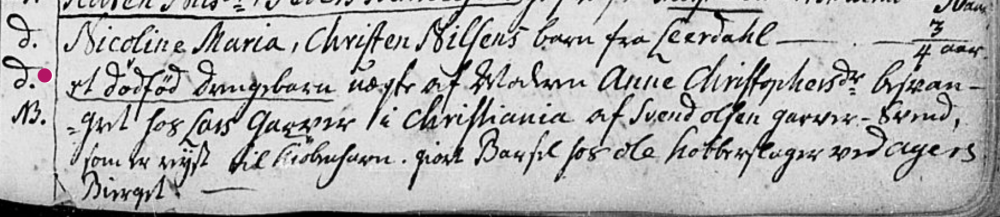 d. Nicoline Maria, Christen Nilsens barn fra Leerdahl — 3/4 aar.
d. et dödföd drengebarn uægte af Modern Anne Christophersdr. besvan-
NB. =gret hos Lars Garver i Christiania af Svend olsen garver-Svend,
som er reyst til Kiöbenhavn. giort Barsel hos ole Kobberslager ved agers
Bierget.